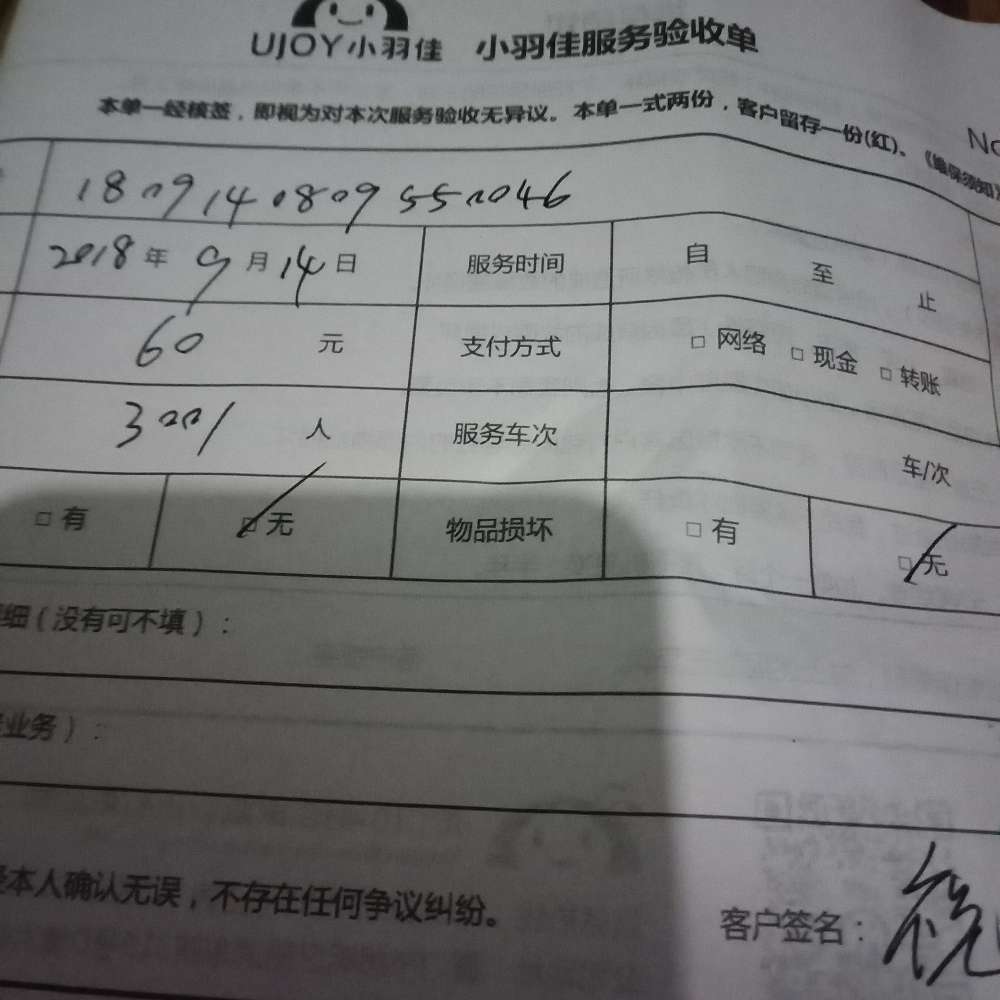 UJOY小羽佳 小羽佳服务验收单
本单一经核签，即视为对本次服务验收无异议。本单一式两份，客户留存一份(红)。
No
1809140809550046
2018年9月14日 服务时间 自 至 止
60 元 支付方式 □ 网络 □ 现金 □ 转账
3001 人 服务车次 车/次
□ 有 □ 无 物品损坏 □ 有 □ 无
细（没有可不填）：
业务）：
本人确认无误，不存在任何争议纠纷。
客户签名：